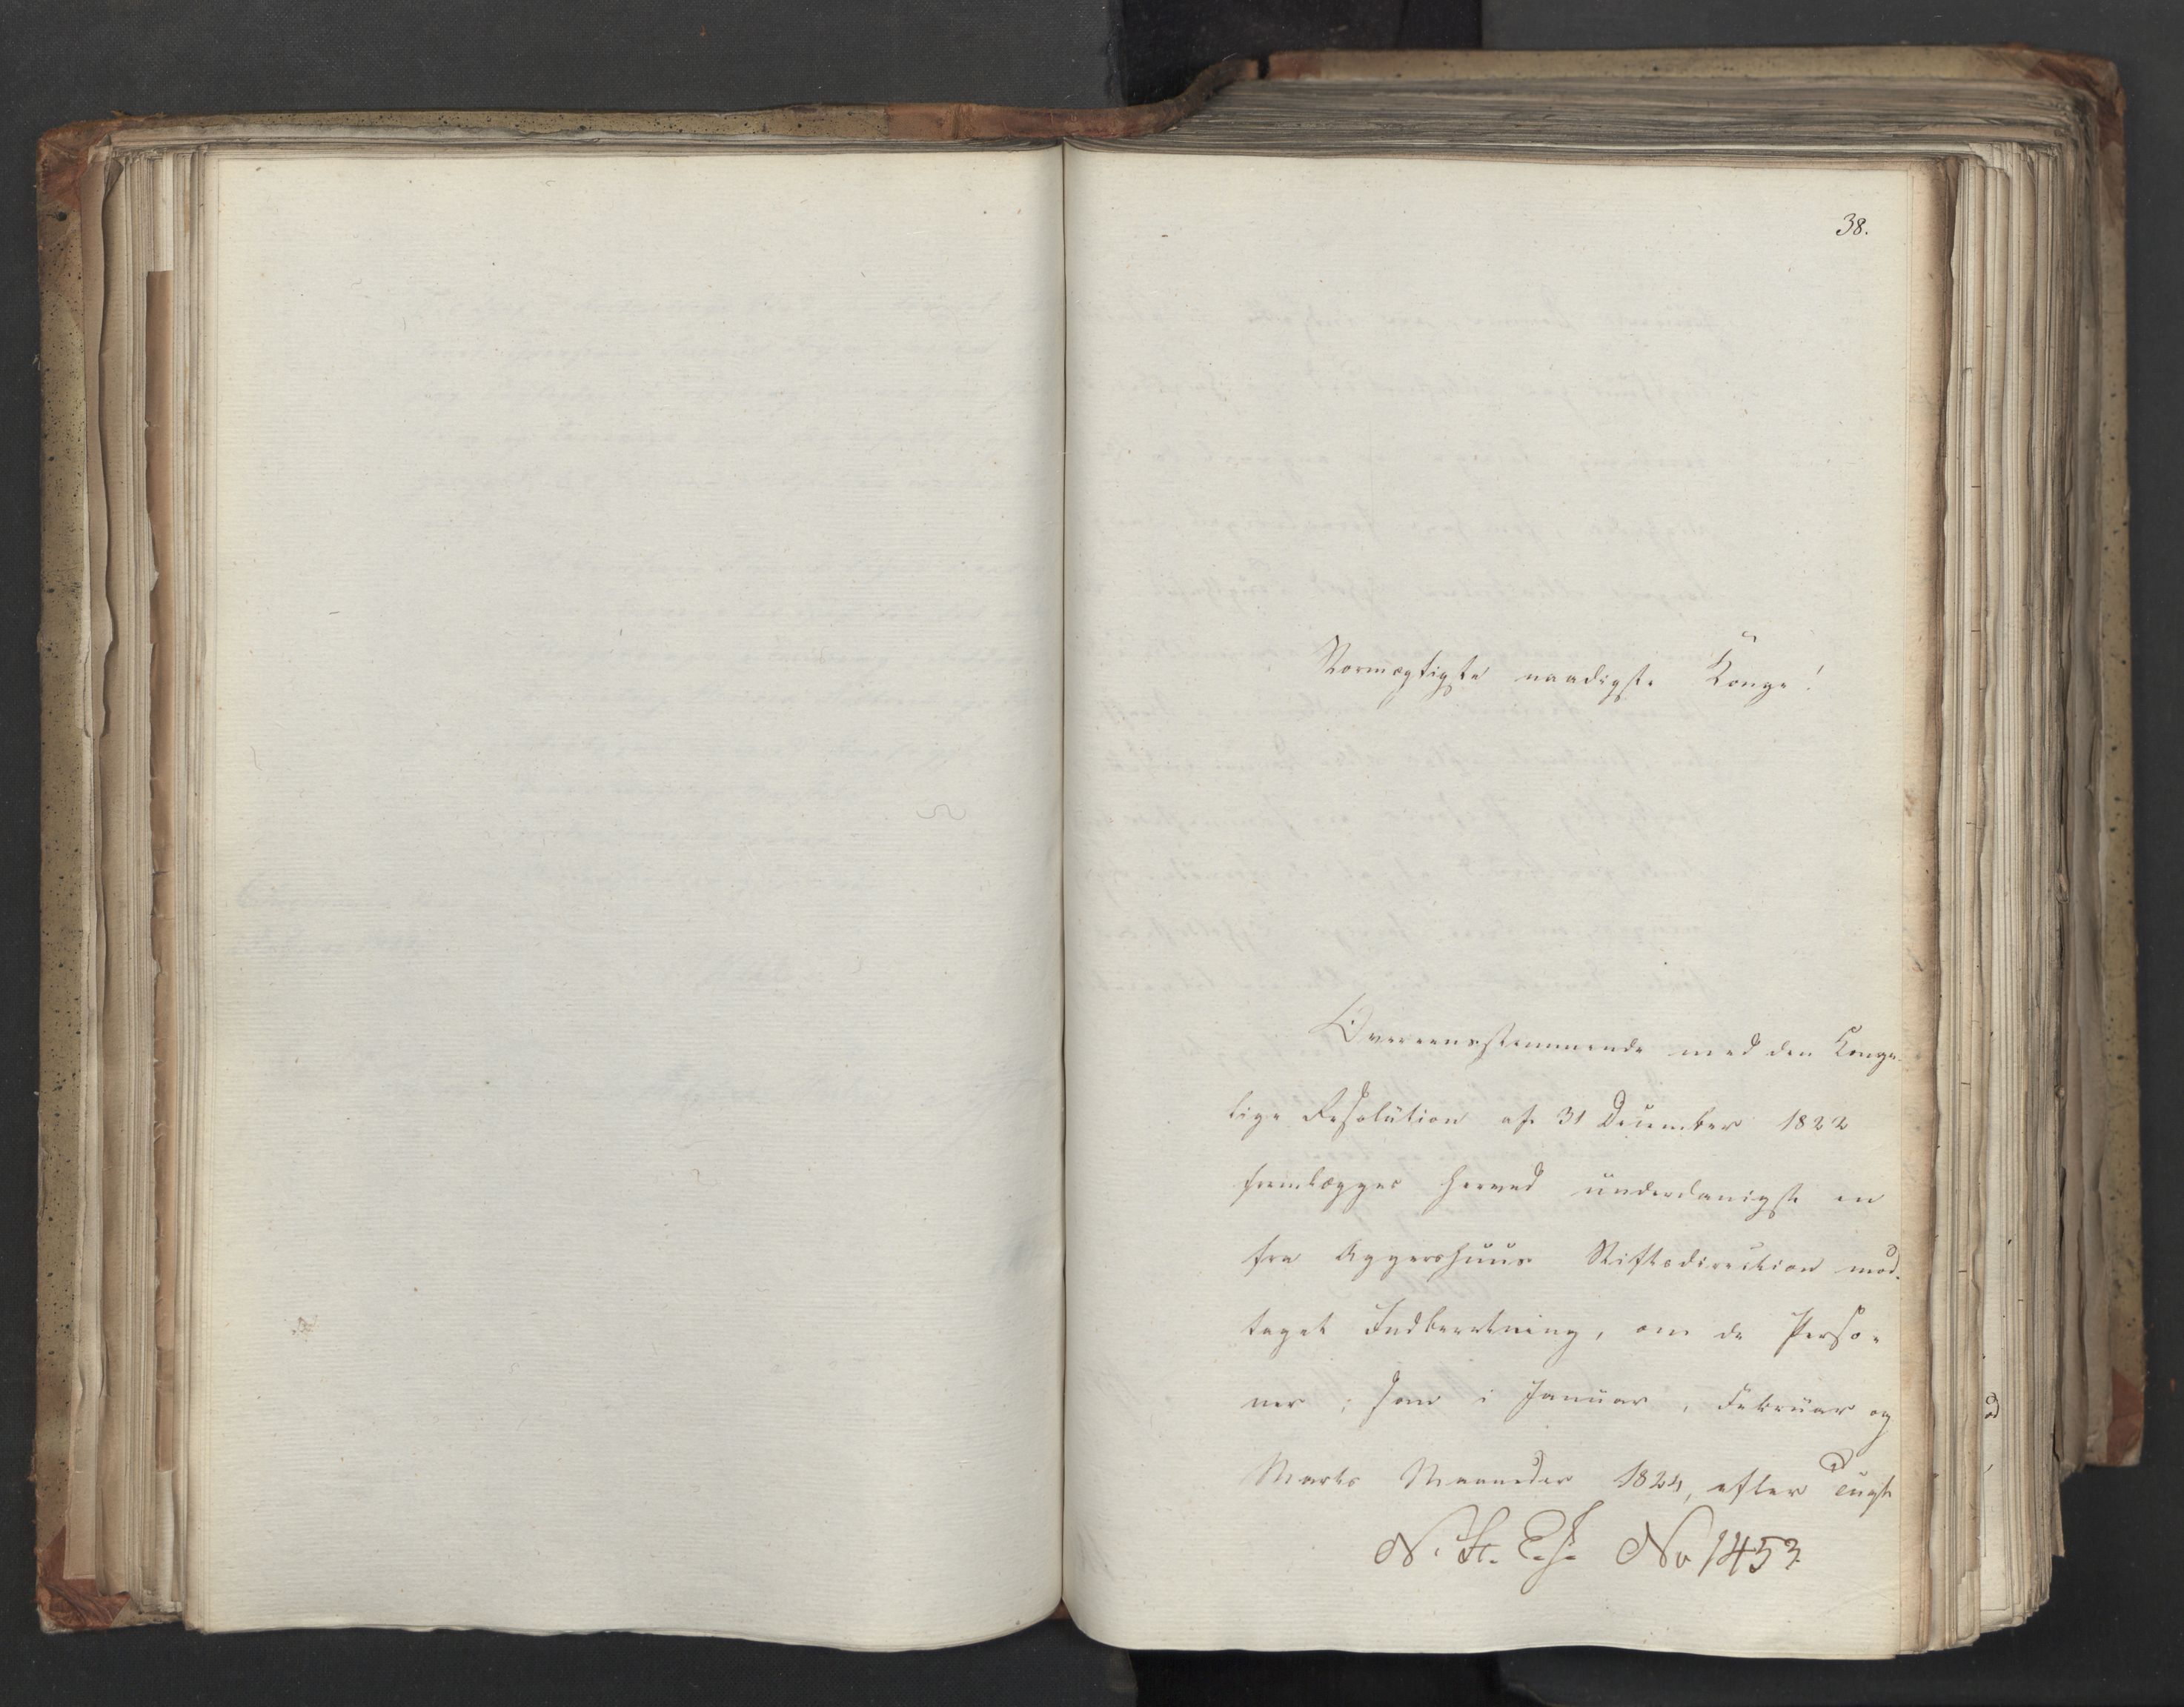 38.
Stormægtigste naadigste Konge!
Overeensstemmende med den Konge-
lige Resolution af 31 December 1822
fremlægges herved underdanigst en
fra Aggershuus Stiftsdirection mod-
taget Indberetning, om de Perso-
ner, som i Januar, Februar og
Marts Maaneder 1824, efter Tugt
N. St. E. No 1453.